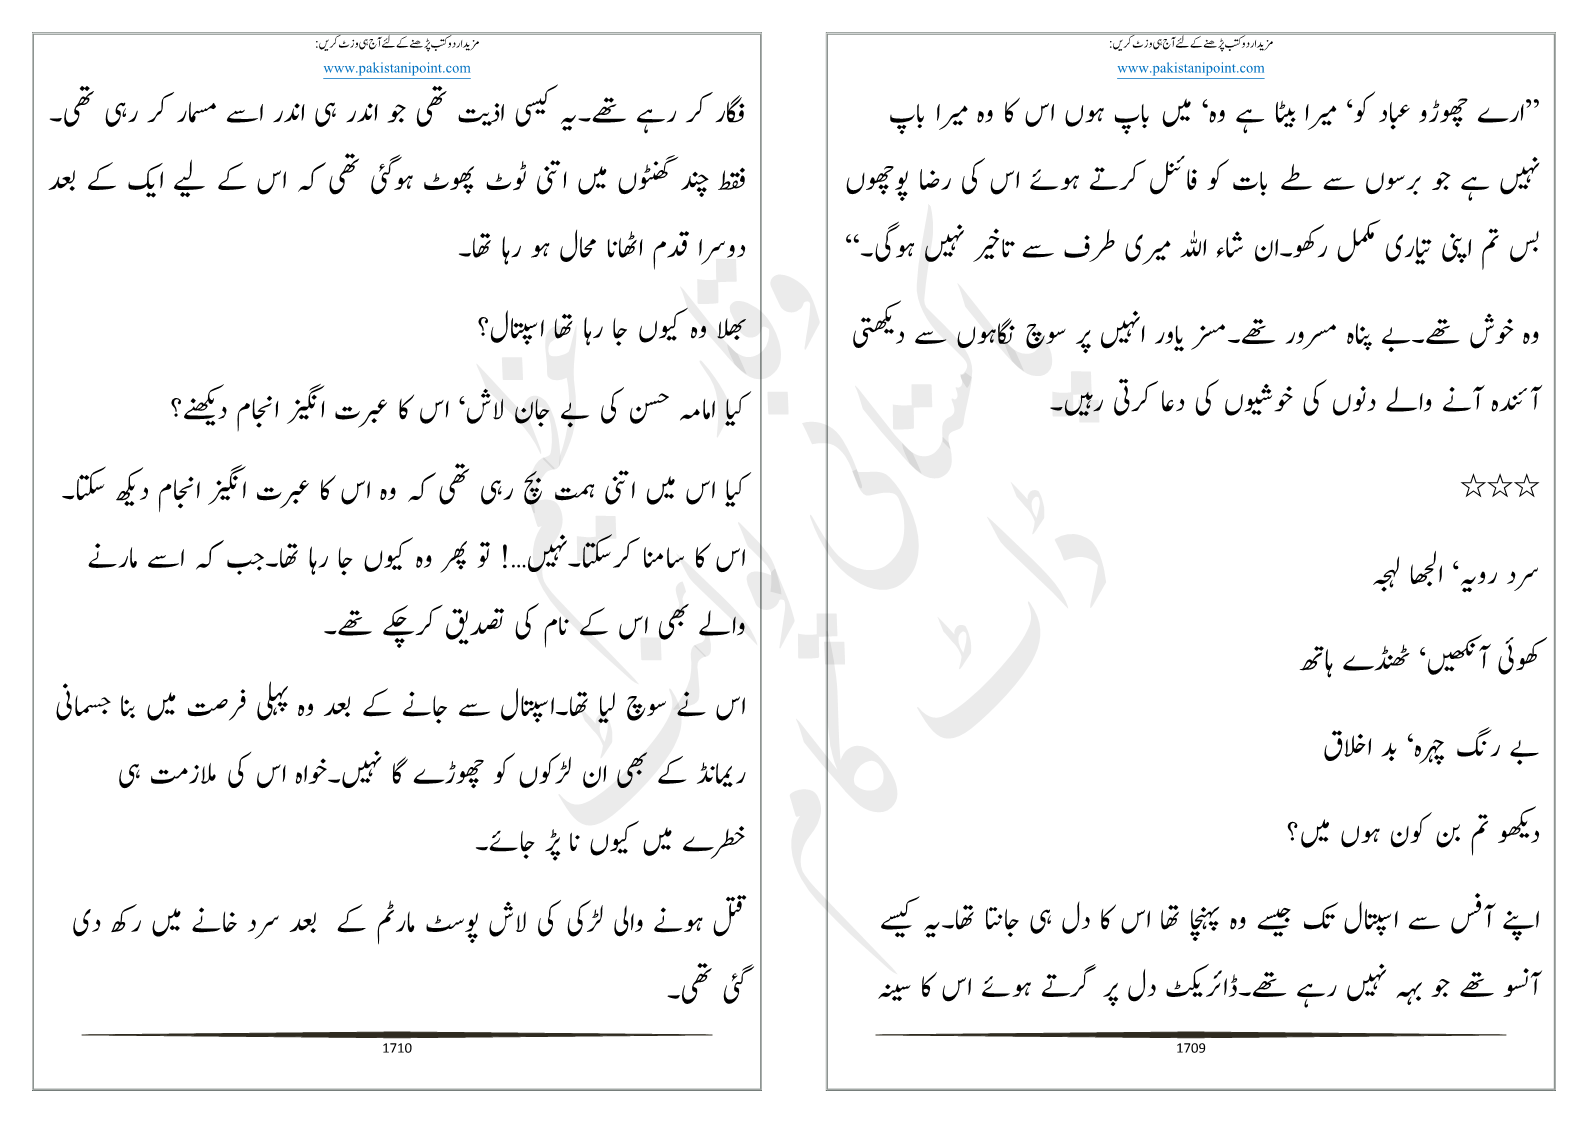 مزید اردو کتب پڑھنے کے لئے آج ہی وزٹ کریں:
www.pakistanipoint.com
”ارے چھوڑو عباد کو‘ میرا بیٹا ہے وہ‘ میں باپ ہوں اس کا وہ میرا باپ
نہیں ہے جو برسوں سے طے بات کو فائنل کرتے ہوئے اس کی رضا پوچھوں
بس تم اپنی تیاری مکمل رکھو۔ان شاء اللہ میری طرف سے تاخیر نہیں ہوگی۔“
وہ خوش تھے۔بے پناہ مسرور تھے۔مسز یاور انہیں پر سوچ نگاہوں سے دیکھتی
آئندہ آنے والے دنوں کی خوشیوں کی دعا کرتی رہیں۔
☆☆☆
سرد رویہ‘ الجھا لہجہ
کھوئی آنکھیں‘ ٹھنڈے ہاتھ
بے رنگ چہرہ‘ بد اخلاق
دیکھو تم بن کون ہوں میں؟
اپنے آفس سے اسپتال تک جیسے وہ پہنچا تھا اس کا دل ہی جانتا تھا۔یہ کیسے
آنسو تھے جو بہہ نہیں رہے تھے۔ڈائریکٹ دل پر گرتے ہوئے اس کا سینہ
1709
مزید اردو کتب پڑھنے کے لئے آج ہی وزٹ کریں:
www.pakistanipoint.com
فگار کر رہے تھے۔یہ کیسی اذیت تھی جو اندر ہی اندر اسے مسمار کر رہی تھی۔
فقط چند گھنٹوں میں اتنی ٹوٹ پھوٹ ہوگئی تھی کہ اس کے لیے ایک کے بعد
دوسرا قدم اٹھانا محال ہو رہا تھا۔
بھلا وہ کیوں جا رہا تھا اسپتال؟
کیا امامہ حسن کی بے جان لاش‘ اس کا عبرت انگیز انجام دیکھنے؟
کیا اس میں اتنی ہمت بچ رہی تھی کہ وہ اس کا عبرت انگیز انجام دیکھ سکتا۔
اس کا سامنا کرسکتا۔نہیں...! تو پھر وہ کیوں جا رہا تھا۔جب کہ اسے مارنے
والے بھی اس کے نام کی تصدیق کرچکے تھے۔
اس نے سوچ لیا تھا۔اسپتال سے جانے کے بعد وہ پہلی فرصت میں بنا جسمانی
ریمانڈ کے بھی ان لڑکوں کو چھوڑے گا نہیں۔خواہ اس کی ملازمت ہی
خطرے میں کیوں نا پڑ جائے۔
قتل ہونے والی لڑکی کی لاش پوسٹ مارٹم کے بعد سرد خانے میں رکھ دی
گئی تھی۔
1710
پاکستانی پوائنٹ ڈاٹ کام